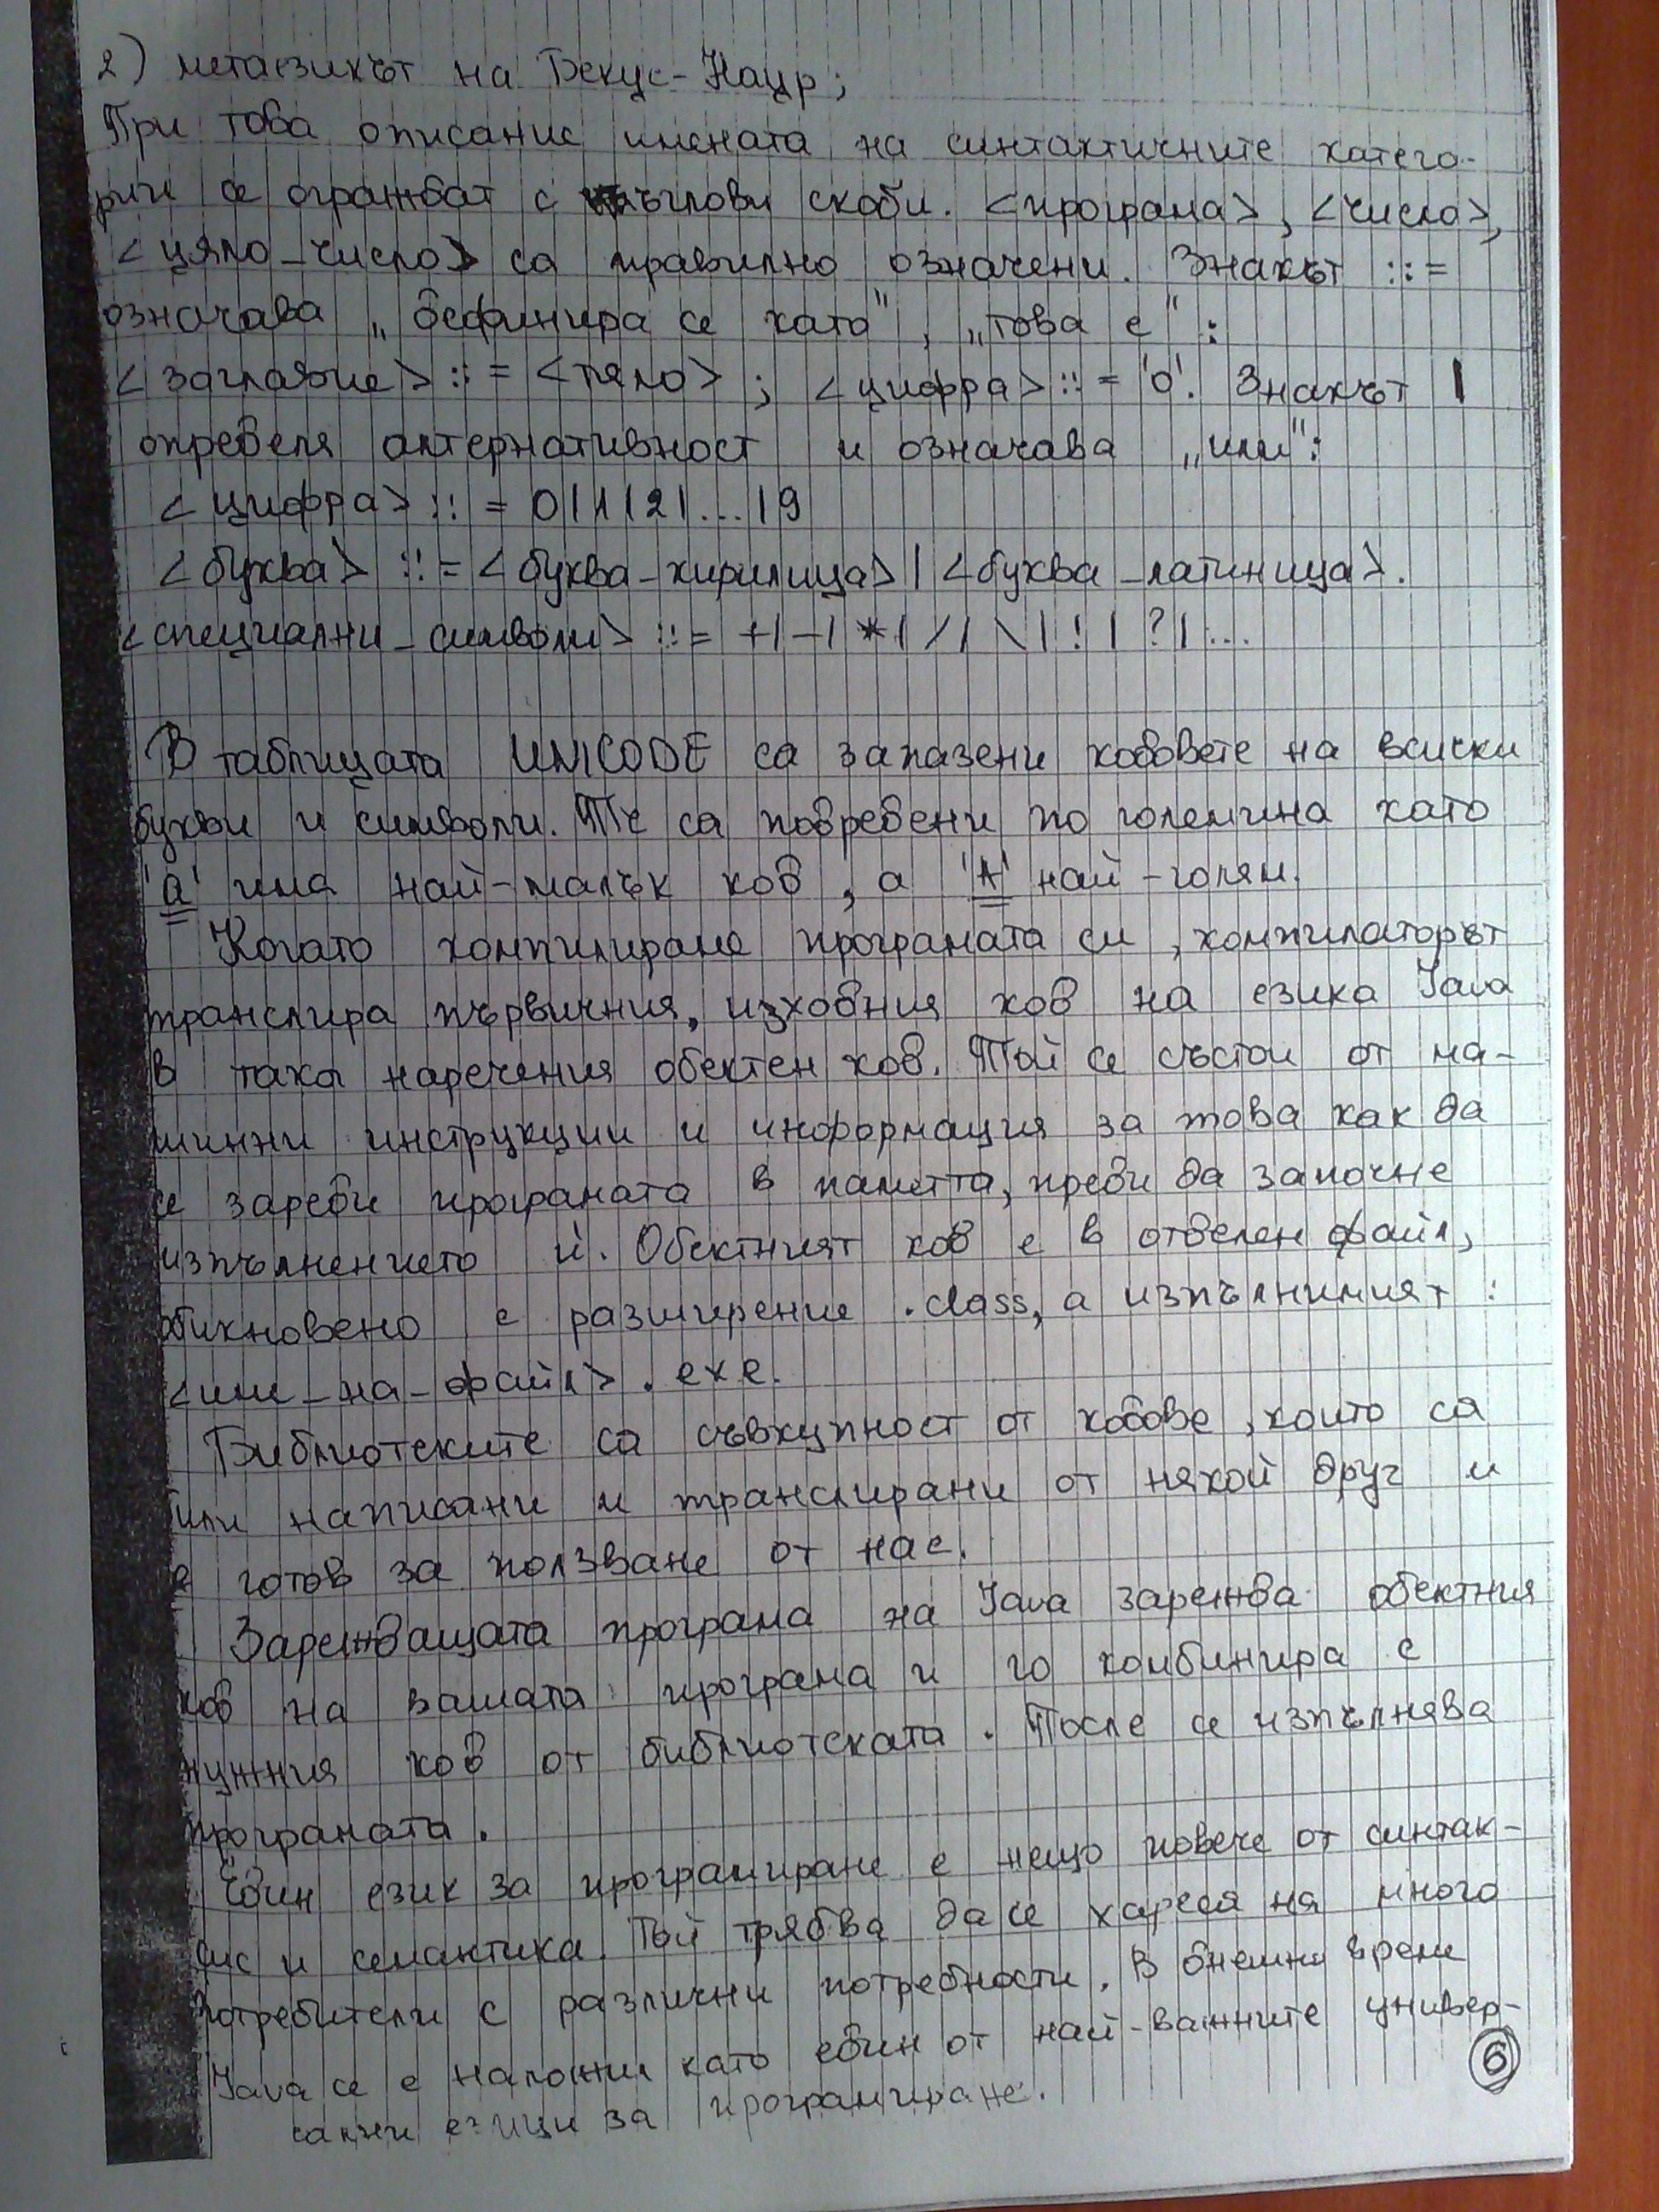 2) метаезикът на Бекус-Наур;
При това описание имената на синтактичните катего-
рии се ограждат с ъглови скоби. <програма>, <число>,
<цяло_число> са правилно означени. Знакът ::=
означава „дефинира се като", „това е":
<заглавие> ::= <тяло> ; <цифра> ::= '0'. Знакът |
определя алтернативност и означава „или":
<цифра> ::= 0|1|2|...|9
<буква> ::= <буква_кирилица> | <буква_латиница>.
<специални_символи> ::= +|-|*|/|\|!|?|...
В таблицата UNICODE са запазени кодовете на всички
букви и символи. Те са подредени по големина като
'а' има най-малък код, а 'А' най-голям.
Когато компилираме програмата си, компилаторът
транслира първичния, изходния код на езика Java
в така наречения обектен код. Той се състои от ма-
шинни инструкции и информация за това как да
се зареди програмата в паметта, преди да започне
изпълнението й. Обектният код е в отделен файл,
обикновено с разширение .class, а изпълнимият :
<име_на_файл>.exe.
Библиотеките са съвкупност от кодове, които са
били написани и транслирани от някой друг и
е готов за ползване от нас.
Зареждащата програма на Java зарежда обектния
код на вашата програма и го комбинира с
нужния код от библиотеката. После се изпълнява
програмата.
Един език за програмиране е нещо повече от синтак-
сис и семантика. Той трябва да се хареса на много
потребители с различни потребности. В днешни време
Java се е наложил като един от най-важните универ-
сални езици за програмиране.
6